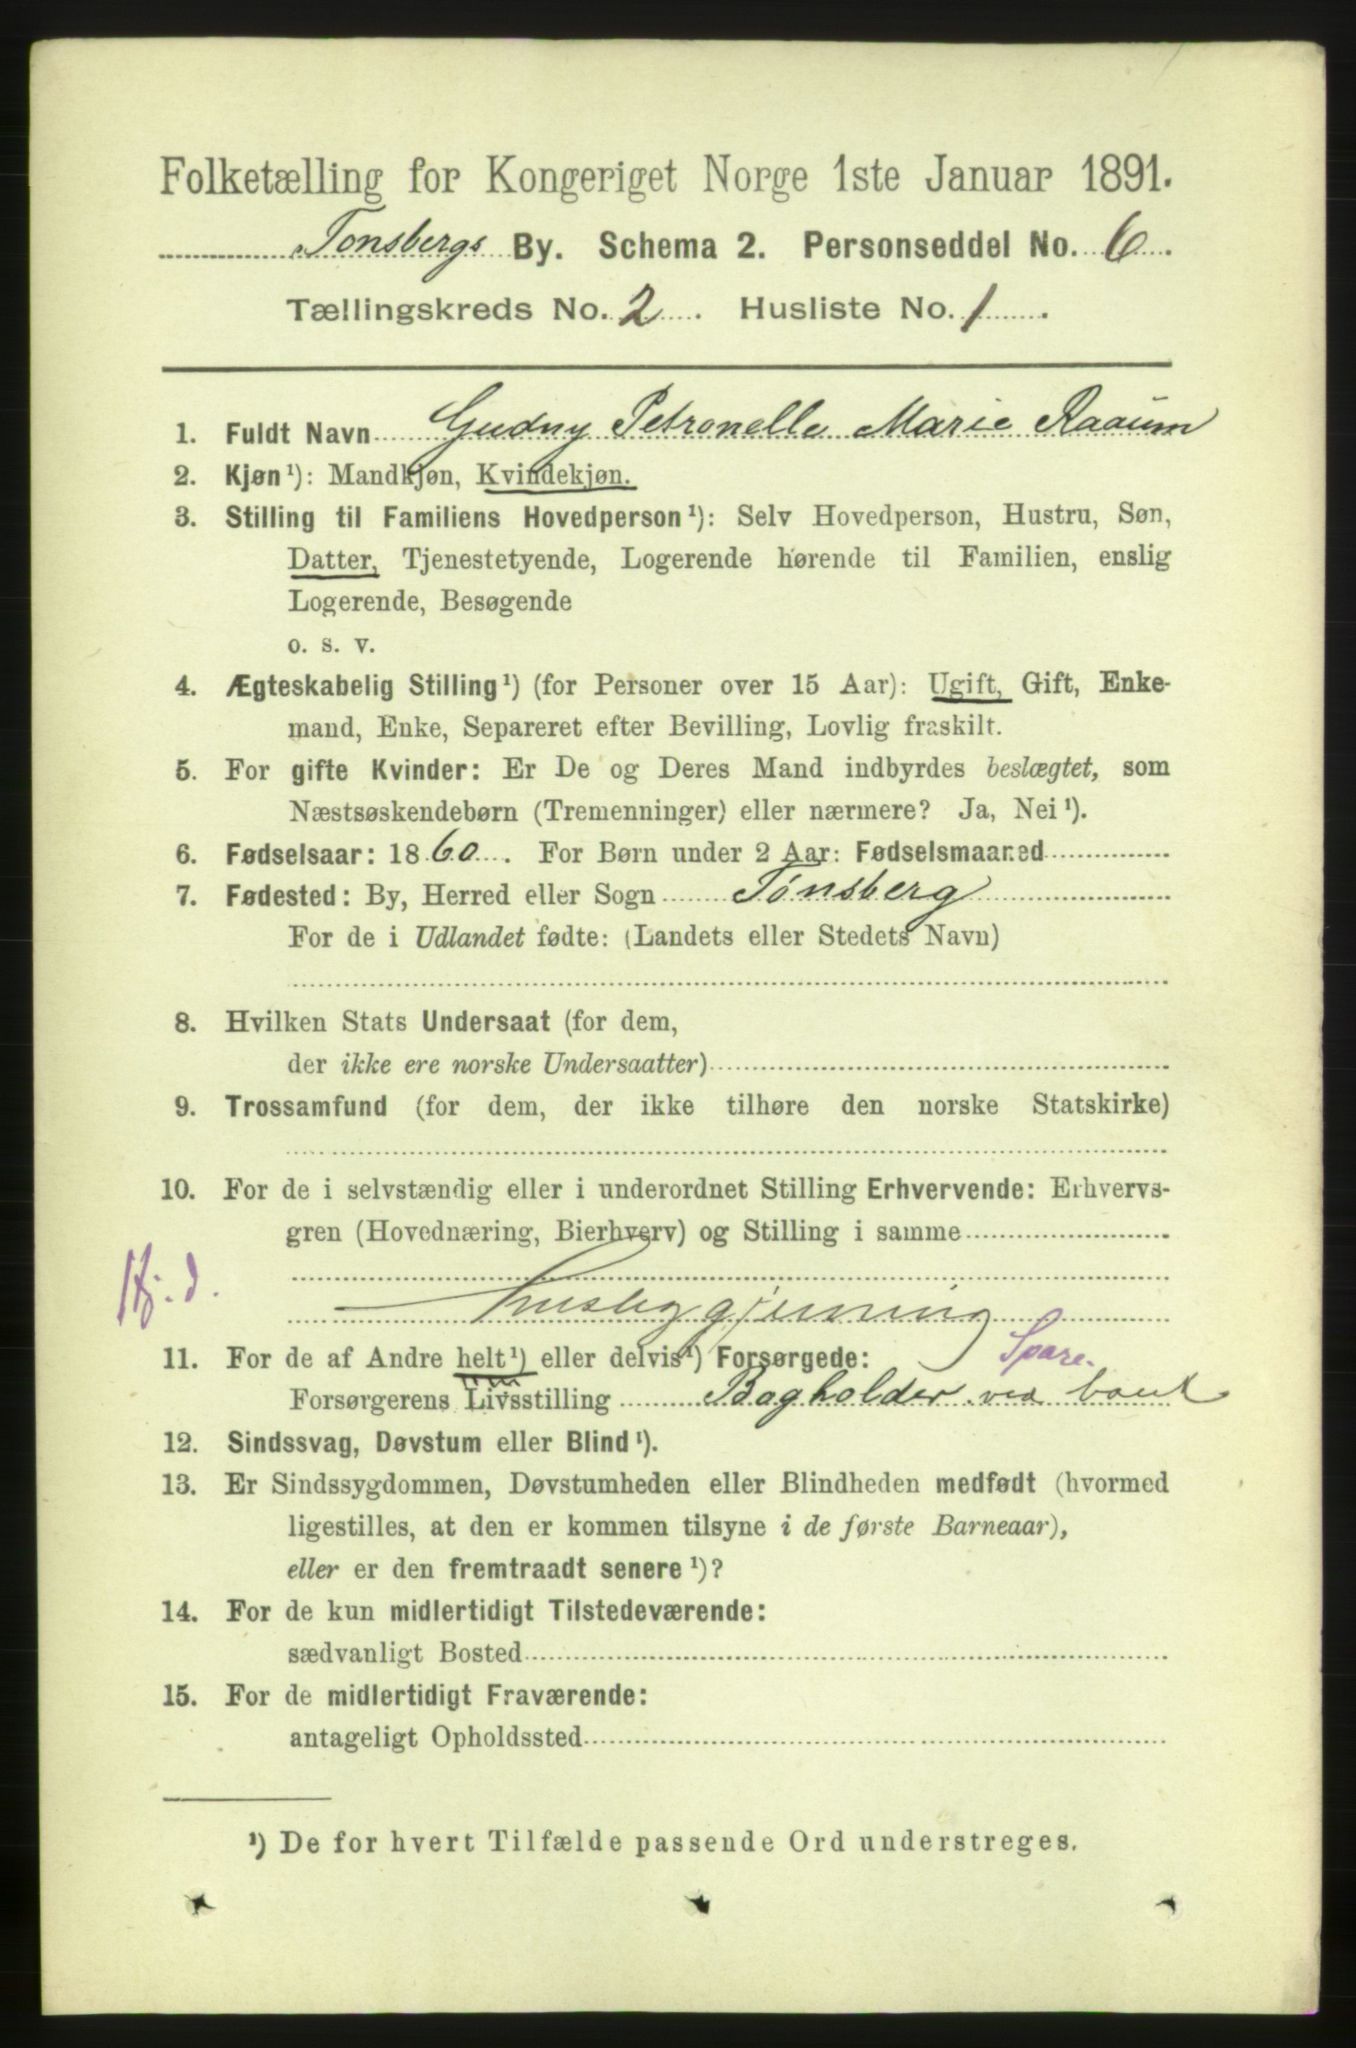 Folketælling for Kongeriget Norge 1ste Januar 1891.
Tønsbergs By. Schema 2. Personseddel No. 6.
Tællingskreds No. 2. Husliste No. 1.
1. Fuldt Navn Gudny Petronelle Marie Raaum
2. Kjøn¹): Mandkjøn, Kvindekjøn.
3. Stilling til Familiens Hovedperson¹): Selv Hovedperson, Hustru, Søn,
Datter, Tjenestetyende, Logerende hørende til Familien, enslig
Logerende, Besøgende
o. s. v.
4. Ægteskabelig Stilling¹) (for Personer over 15 Aar): Ugift, Gift, Enke-
mand, Enke, Separeret efter Bevilling, Lovlig fraskilt.
5. For gifte Kvinder: Er De og Deres Mand indbyrdes beslægtet, som
Næstsøskendebørn (Tremenninger) eller nærmere? Ja, Nei¹).
6. Fødselsaar: 1860. For Børn under 2 Aar: Fødselsmaaned
7. Fødested: By, Herred eller Sogn Tønsberg
For de i Udlandet fødte: (Landets eller Stedets Navn)
8. Hvilken Stats Undersaat (for dem,
der ikke ere norske Undersaatter)
9. Trossamfund (for dem, der ikke tilhøre den norske Statskirke)
10. For de i selvstændig eller i underordnet Stilling Erhvervende: Erhvervs-
gren (Hovednæring, Bierhverv) og Stilling i samme
Hj. d.
huslig gjerning
11. For de af Andre helt¹) eller delvis¹) Forsørgede:
Spare-
Forsørgerens Livsstilling Bogholder ved bank
12. Sindssvag, Døvstum eller Blind¹).
13. Er Sindssygdommen, Døvstumheden eller Blindheden medfødt (hvormed
ligestilles, at den er kommen tilsyne i de første Barneaar),
eller er den fremtraadt senere¹)?
14. For de kun midlertidigt Tilstedeværende:
sædvanligt Bosted
15. For de midlertidigt Fraværende:
antageligt Opholdssted
¹) De for hvert Tilfælde passende Ord understreges.